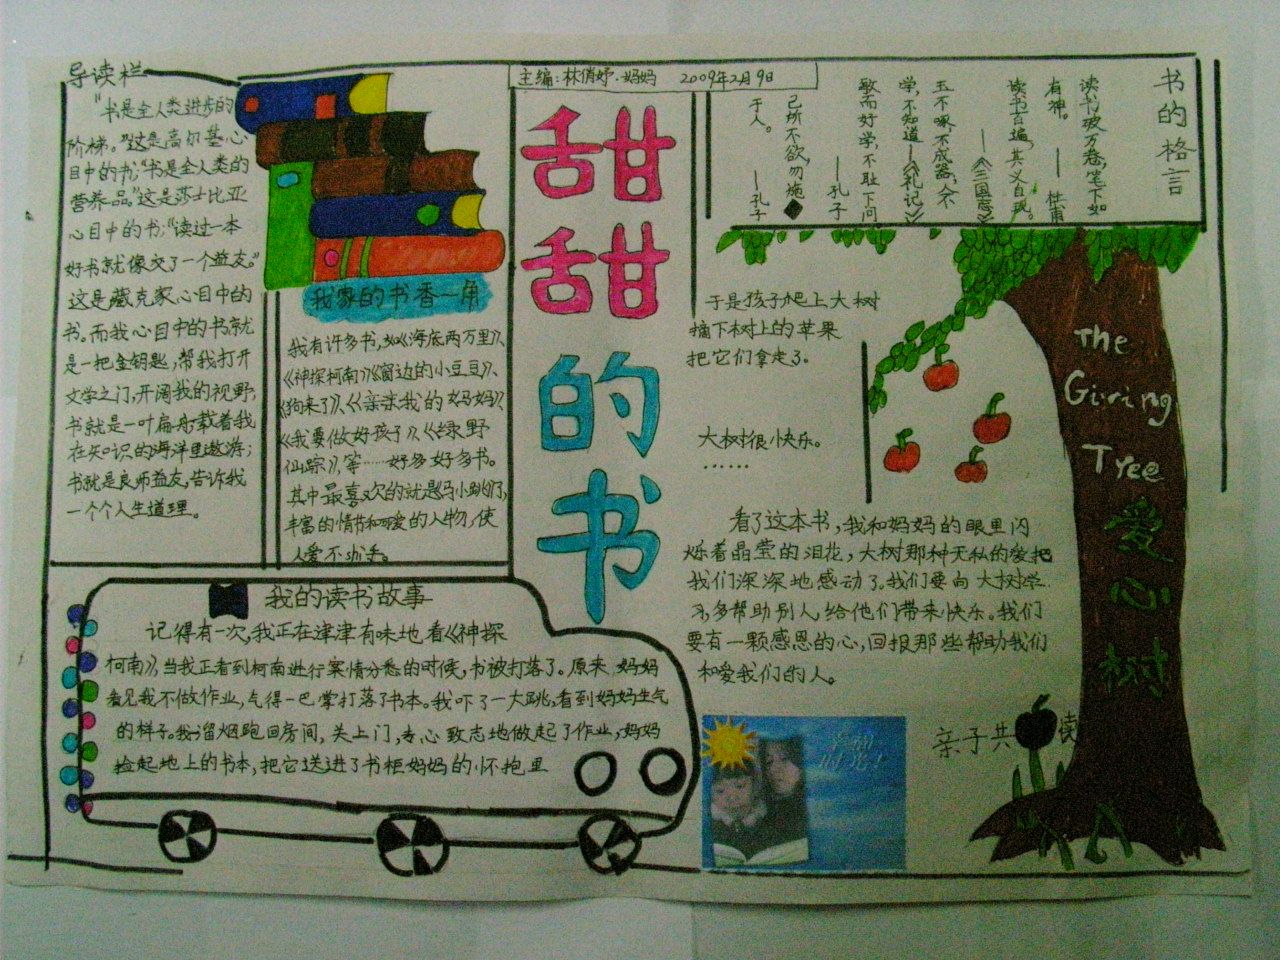 导读栏
“书是全人类进步的
阶梯。”这是高尔基心
目中的书；“书是全人类的
营养品。”这是莎士比亚
心目中的书；“读过一本
好书就像交了一个益友。”
这是臧克家心目中的
书。而我心目中的书就
是一把金钥匙，帮我打开
文学之门，开阔我的视野；
书就是一叶扁舟，载着我
在知识的海洋里遨游；
书就是良师益友，告诉我
一个个人生道理。
我家的书香一角
我有许多书，如《海底两万里》、
《神探柯南》《窗边的小豆豆》、
《狗来了》、《亲亲我的妈妈》、
《我要做好孩子》、《绿野
仙踪》，等……好多好多书。
其中最喜欢的就是《马小跳》们，
丰富的情节和可爱的人物，使
人爱不
主编：林俏妤·妈妈 2009年2月9日
甜甜的书
书的格言
读书破万卷，笔下如
有神。——杜甫
读书百遍，其义自现。
——《三国志》
玉不啄，不成器；人不
学，不知道——《礼记》
敏而好学，不耻下问
——孔子
己所不欲，勿施
于人。——孔子
于是孩子爬上大树
摘下树上的苹果
把它们拿走了。
大树很快乐。
……
The
Giving
Tree
爱
心
树
看了这本书，我和妈妈的眼里闪
烁着晶莹的泪花，大树那种无私的爱把
我们深深地感动了。我们要向大树学
习，多帮助别人，给他们带来快乐。我们
要有一颗感恩的心，回报那些帮助我们
和爱我们的人。
亲子共读
我的读书故事
记得有一次，我正在津津有味地看《神探
柯南》，当我正看到柯南进行案情分悉的时候，书被打落了。原来妈妈
看见我不做作业，气得一巴掌打落了书本。我吓了一大跳，看到妈妈生气
的样子。我一溜烟跑回房间，关上门，专心致志地做起了作业，妈妈
捡起地上的书本，把它送进了书柜妈妈的怀抱里